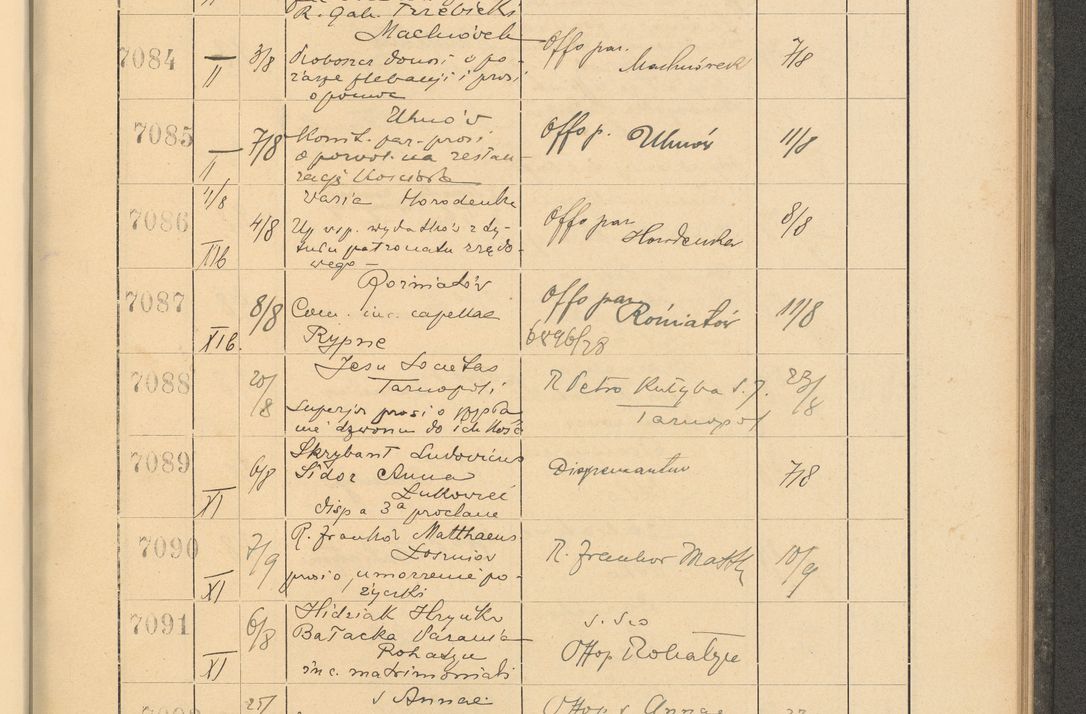 R. Gab. Trzebicki
7084
II
3/8
Machnówek
Proboszcz donosi o po-
żarze plebanji i prosi
o pomoc
Offo par.
Machnówek
7/8
7085
II
7/8
Uhnów
Komit. par. prosi
o pozwol. na restau-
rację Kościoła
Offo p. Uhnów
11/8
7086
4/8
XIIb
4/8
Varia Horodenka
wydatków z ty-
tułu patronatu rządo-
wego
Offo par
Horodenka
8/8
7087
XIb.
8/8
Rożniatów
Com. inc. capellae
Rypne
Offo par
Rożniatów
6896/28
11/8
7088
20/8
Jesu Societas
Tarnopoli
Superjor prosi o
nie dzwonu do ich
R Petro Kutyba S. J.
Tarnopol
23/8
7089
XI
6/8
Skrybant Ludovicus
Sidor Anna
disp a 3ª proclam
Dispensantur
7/8
7090
XI
7/9
R. Frankor Matthaeus
prosi o umorzenie po-
życzki
R. Frankor Matth
10/9
7091
XI
6/8
Hidziak Hryńko
Bałacka Parania
Rohatyn
inc. matrimoniali
Offop Rohatyn
25/
S Annae
Offop S Annae